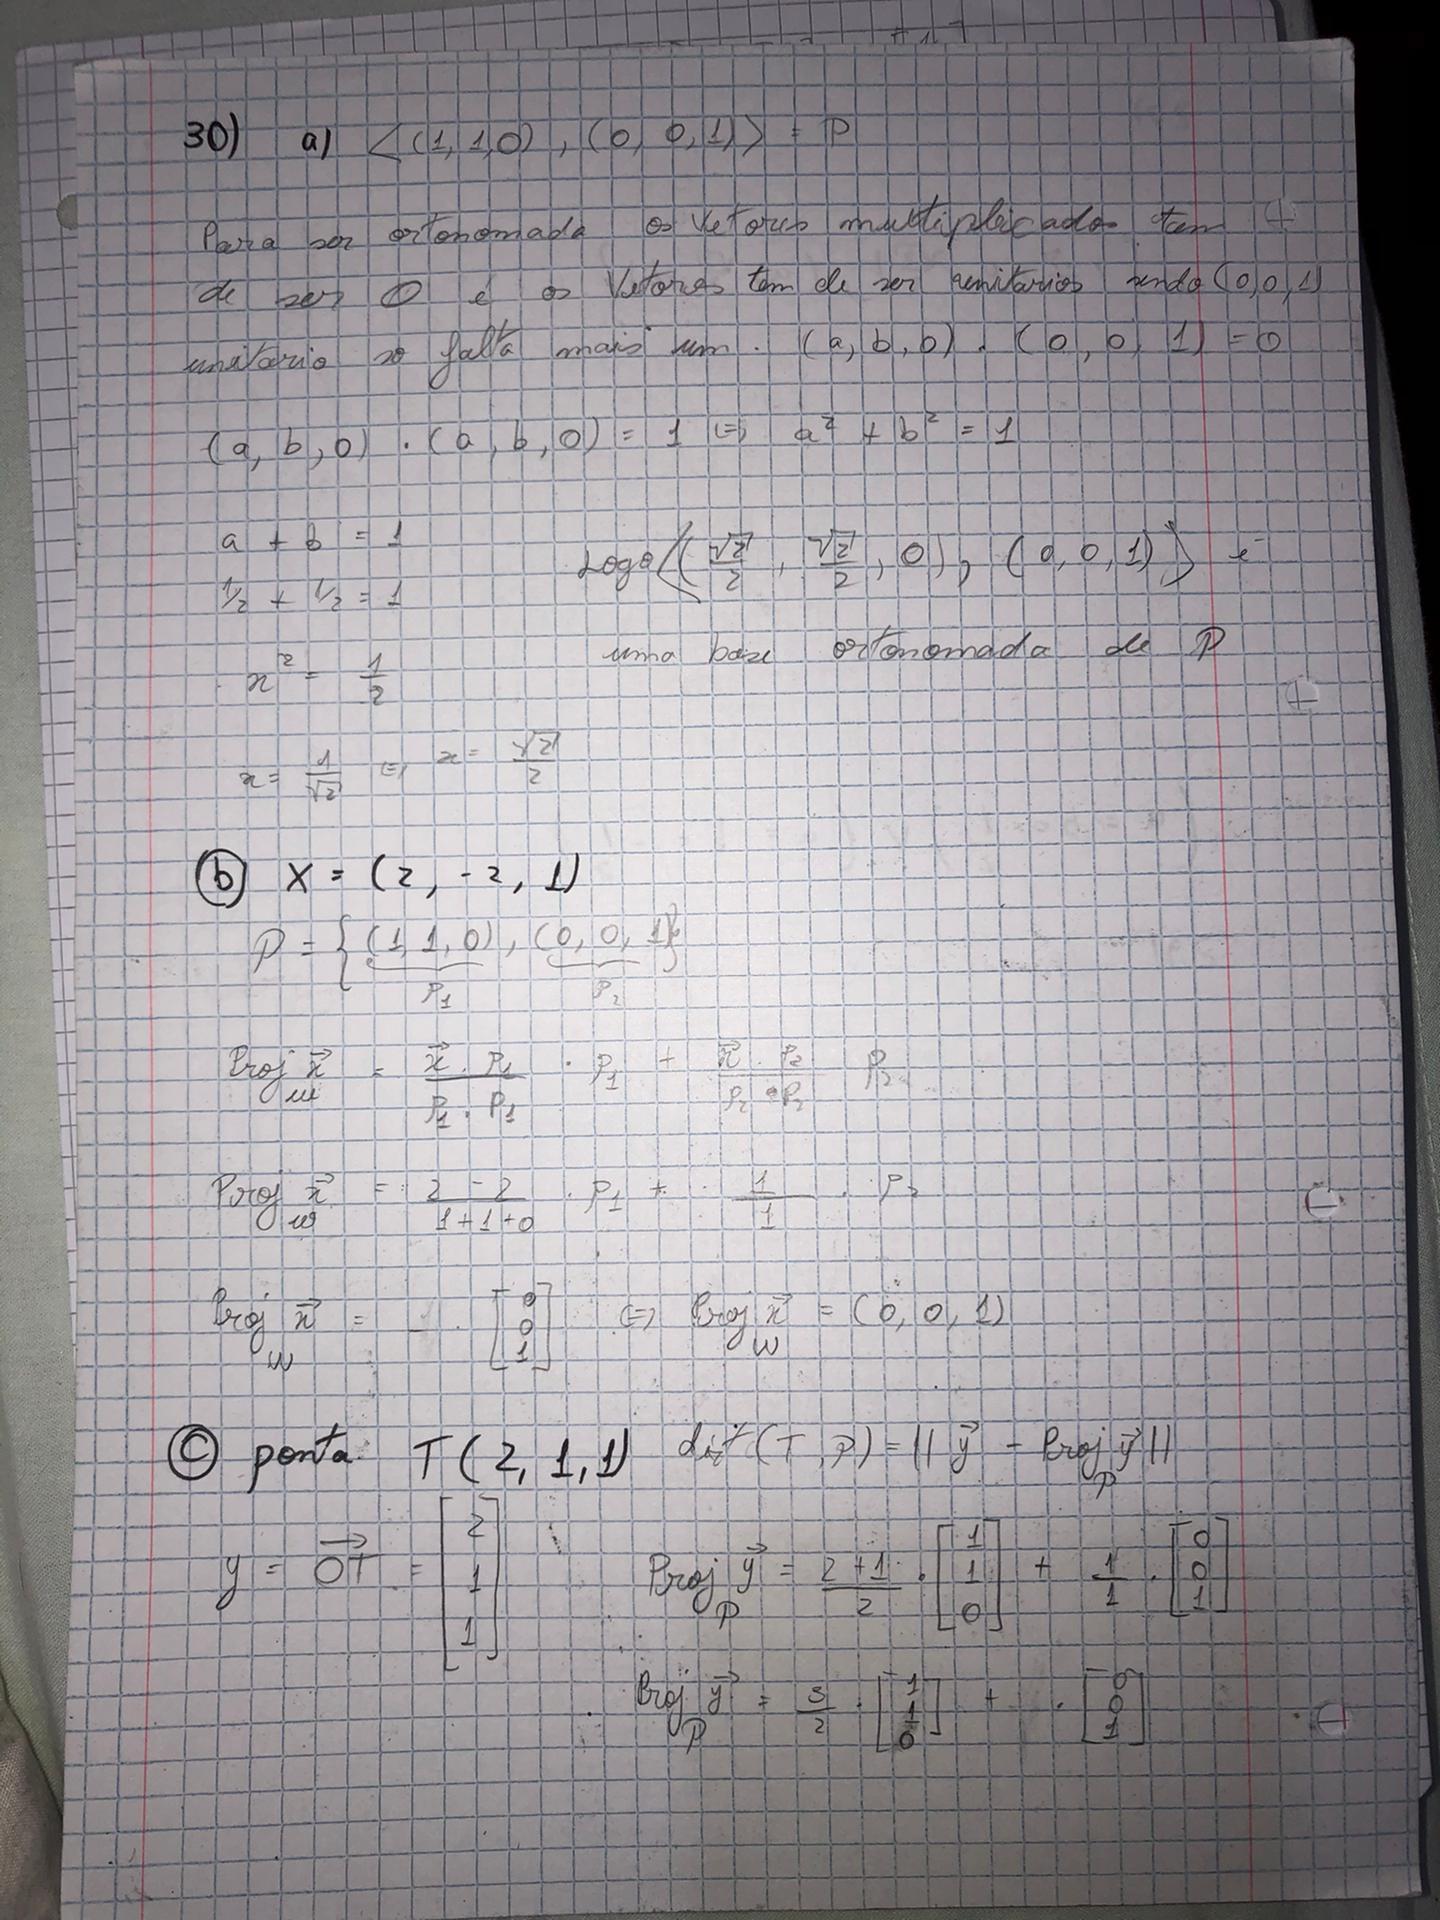 30) a) <(1,1,0), (0,0,1)> = P
Para ser ortonomada os vetores multiplicados tem
de ser 0 e os vetores tem de ser unitarios sendo (0,0,1)
unitario so falta mais um. (a,b,0) . (0,0,1) = 0
(a,b,0) . (a,b,0) = 1 (=) a² + b² = 1
a + b = 1
1/2 + 1/2 = 1
Logo <(√2/2, √2/2, 0), (0,0,1)> é
uma base ortonomada de P
x² = 1/2
x = 1/√2 (=) x = √2/2
(b) X = (2, -2, 1)
P = {(1,1,0), (0,0,1)}
P₁ P₂
Proj_w x⃗ = (x⃗ . P₁)/(P₁ . P₁) . P₁ + (x⃗ . P₂)/(P₂ . P₂) P₂
Proj_w x⃗ = (2 - 2)/(1+1+0) . P₁ + 1/1 . P₂
Proj_w x⃗ = . [0 0 1] (=) Proj_w x⃗ = (0,0,1)
(c) ponta T(2,1,1) dist(T,P) = ||y⃗ - Proj_P y⃗||
y = OT⃗ = [2 1 1]
Proj_P y⃗ = (2+1)/2 . [1 1 0] + 1/1 . [0 0 1]
Proj_P y⃗ = 3/2 . [1 1 0] + . [0 0 1]